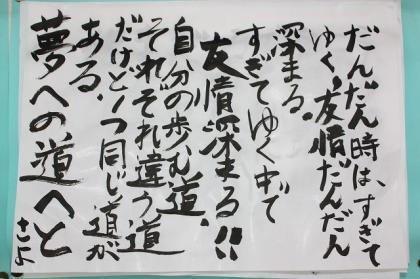 だんだん時は、すぎて
ゆく、友情だんだん
深まる。
すぎてゆく中で
友情深まる!!
自分の歩む道、
それぞれ違う道
だけど1つ同じ道が
ある。
夢への道へと
さよ